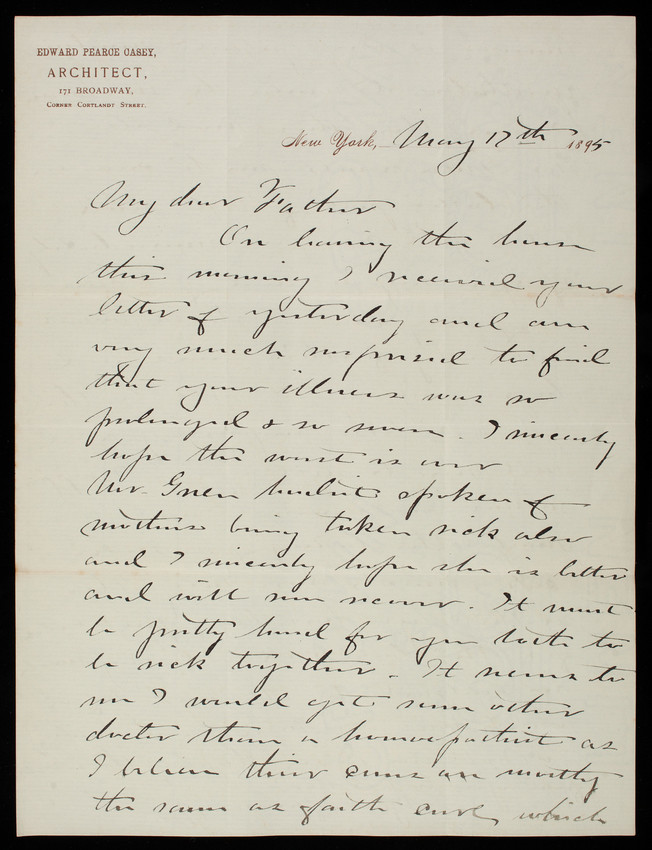 EDWARD PEARCE CASEY,
ARCHITECT,
171 BROADWAY,
CORNER CORTLANDT STREET.
New York, May 17th 1895
My dear Father
On leaving the house
this morning I received your
letter of yesterday and am
very much surprised to find
that your illness was so
prolonged & so severe. I sincerely
hope the worst is over
Mr. Green hadn't spoken of
mothers being taken sick also
and I sincerely hope she is better
and will soon recover. It must
be pretty hard for you both to
be sick together. It seems to
me I would get some other
doctor than a homeopathist as
I believe their cures are mostly
the same as faith cure, which